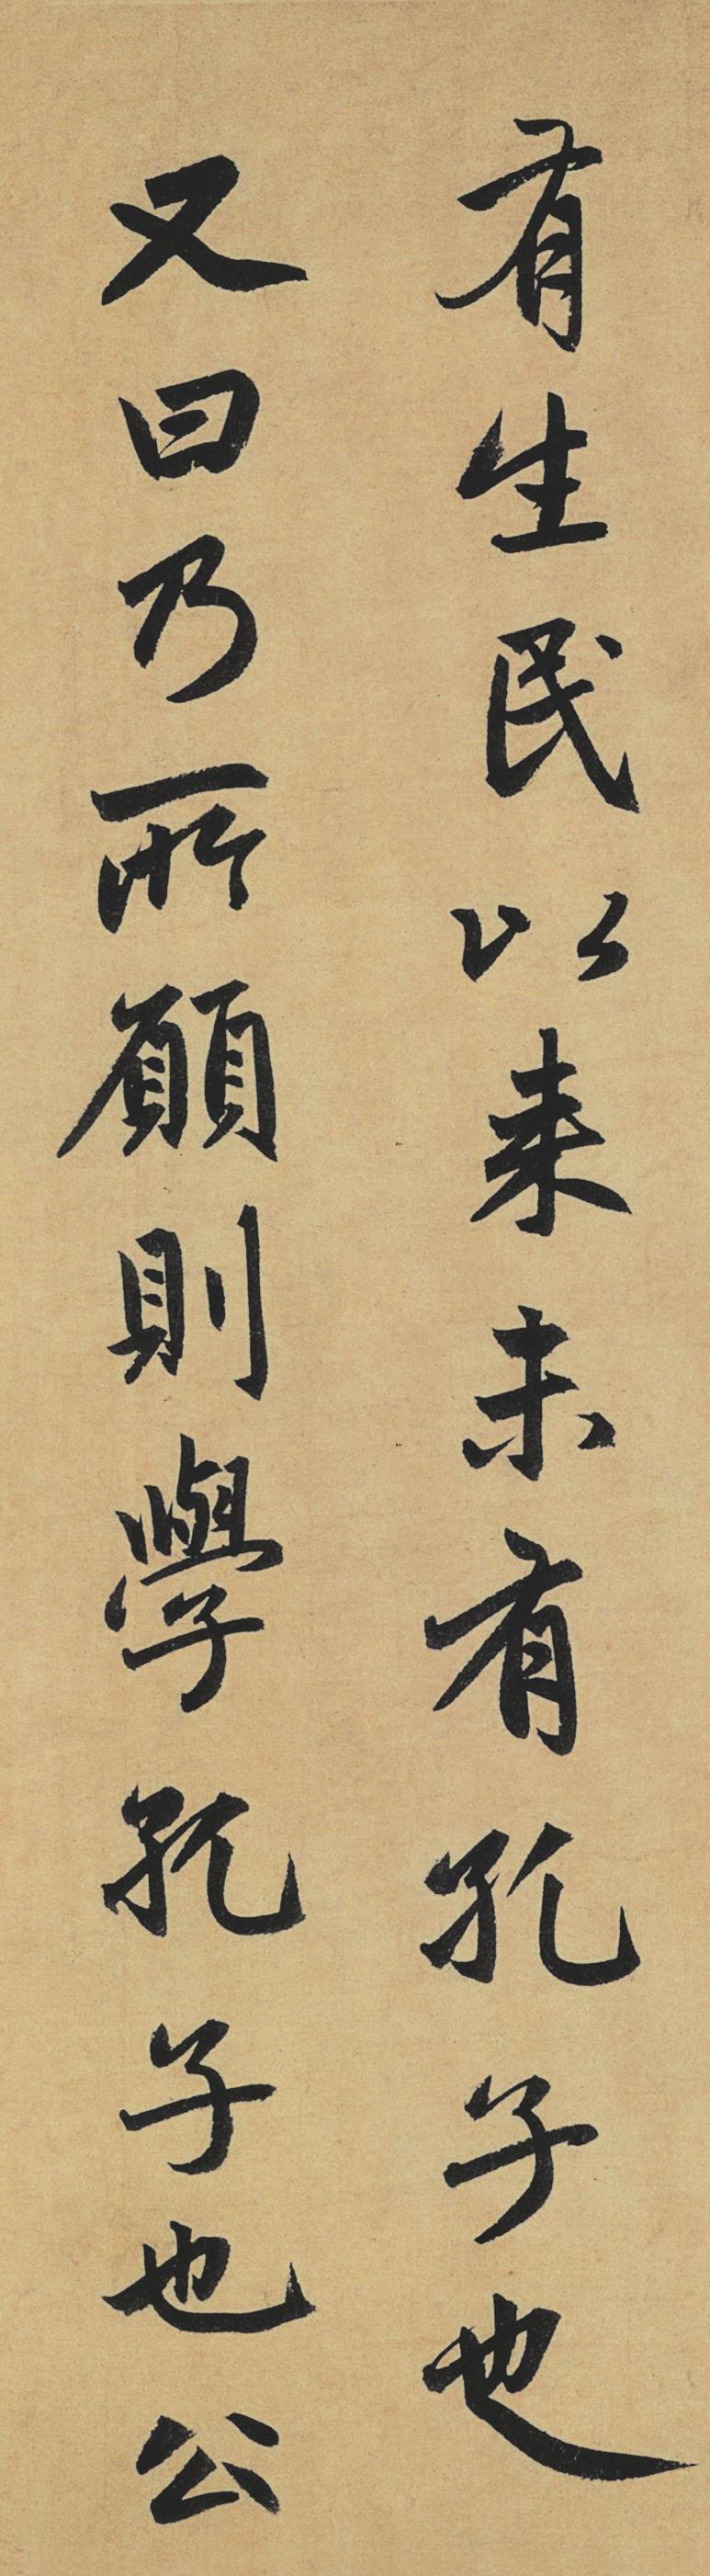 有生民以来未有孔子也
又曰乃所願則學孔子也公